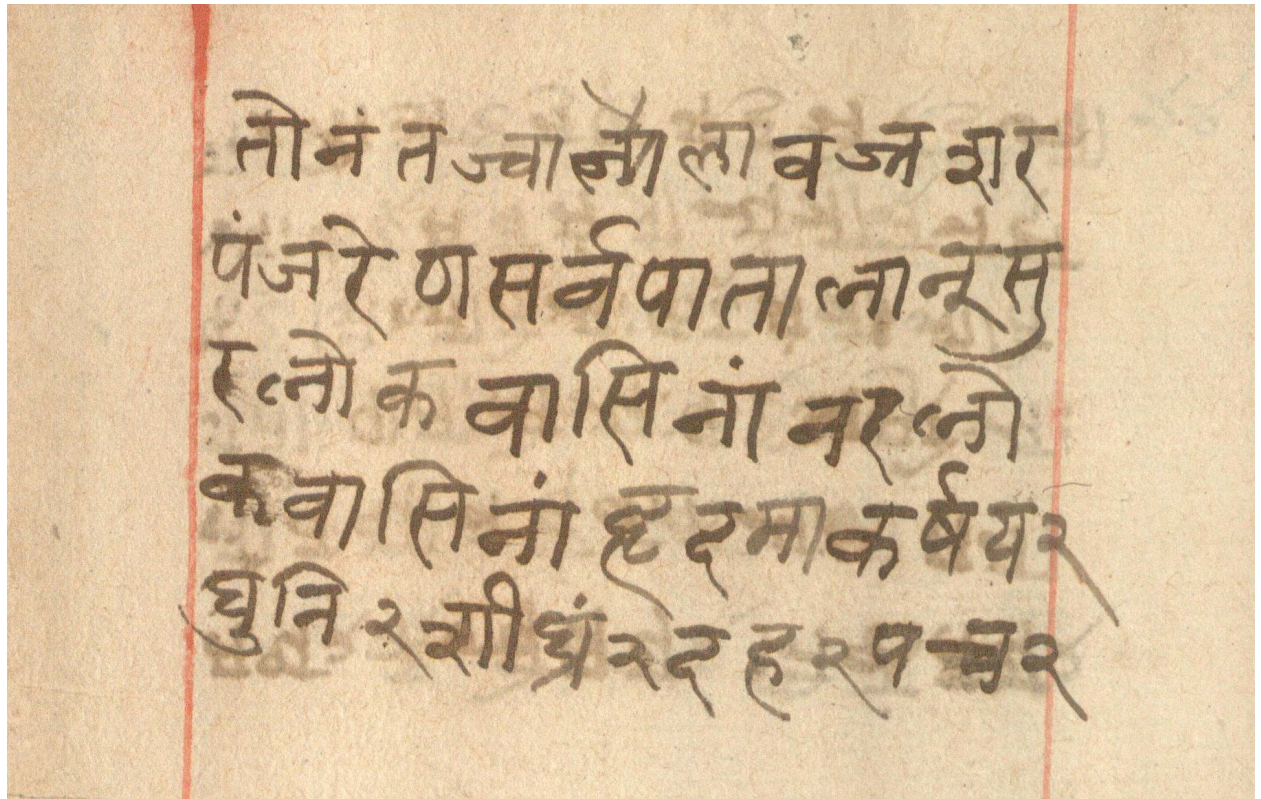 तोनंतज्वालालावज्रशर
पंजरेणसर्वपातालानूसु
रलोकवासिनांनरलो
कवासिनांहृदमाकर्षय२
घुनि२शीघ्रं२दह२पच२